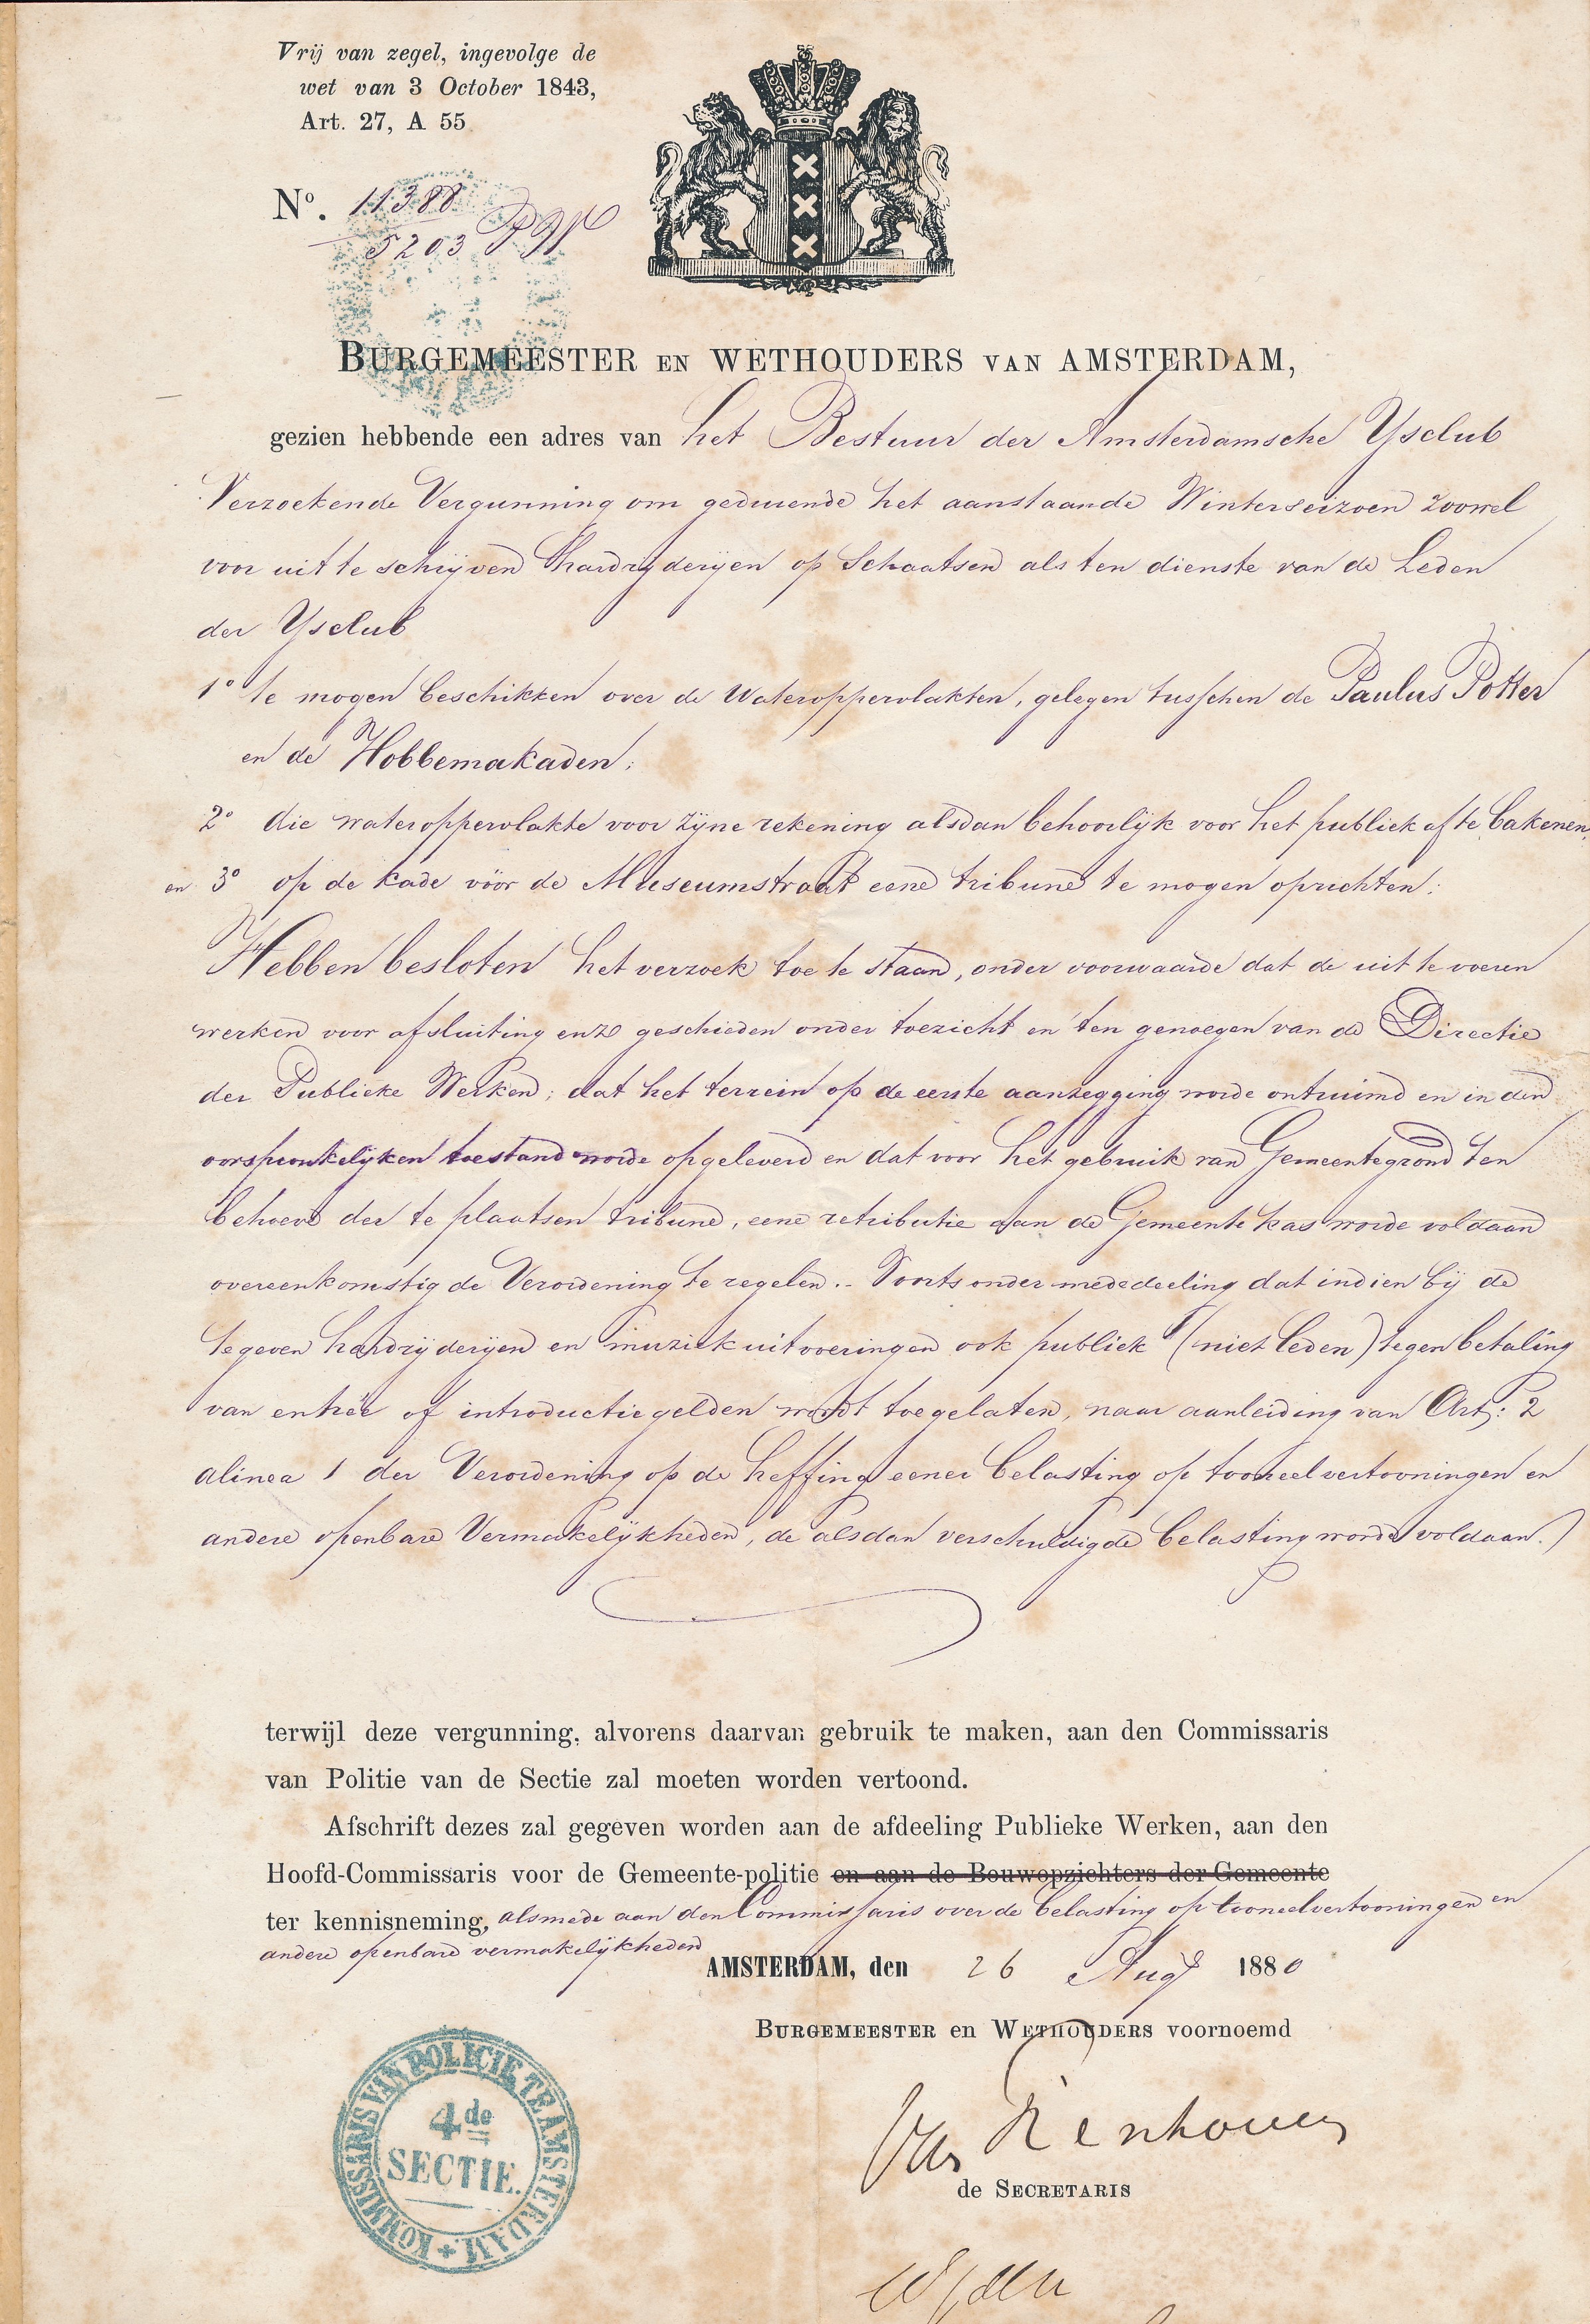 Vrij van zegel, ingevolge de
wet van 3 October 1843,
Art. 27, A 55
No. 11388
5203 P W
BURGEMEESTER EN WETHOUDERS VAN AMSTERDAM,
gezien hebbende een adres van het Bestuur der Amsterdamsche Ysclub
Verzoekende Vergunning om gedurende het aanstaande Winterseizoen zoowel
voor uit te schrijven hardrijderijen op Schaatsen als ten dienste van de Leden
der Ysclub
1o te mogen beschikken over de Wateroppervlakten, gelegen tusschen de Paulus Potter
en de Hobbemakaden;
2o die wateroppervlakte voor zijne rekening alsdan behoorlijk voor het publiek af te bakenen,
en 3o op de kade vóór de Museumstraat eene tribune te mogen oprichten;
Hebben besloten het verzoek toe te staan, onder voorwaarde dat de uit te voeren
werken voor afsluiting enz geschieden onder toezicht en ten genoegen van de Directie
der Publieke Werken; dat het terrein op de eerste aanzegging worde ontruimd en in den
oorspronkelijken toestand worde opgeleverd en dat voor het gebruik van Gemeentegrond ten
behoeve der te plaatsen tribune, eene retributie aan de Gemeente kas worde voldaan
overeenkomstig de Verordening te regelen. - Voorts onder mededeeling dat indien bij de
te geven hardrijderijen en muziekuitvoeringen ook publiek (niet leden) tegen betaling
van entrée of introductiegelden wordt toegelaten, naar aanleiding van Art: 2
alinea 1 der Verordening op de heffing eener belasting op tooneelvertooningen en
andere openbare Vermakelijkheden, de alsdan verschuldigde belasting worde voldaan.)
terwijl deze vergunning, alvorens daarvan gebruik te maken, aan den Commissaris
van Politie van de Sectie zal moeten worden vertoond.
Afschrift dezes zal gegeven worden aan de afdeeling Publieke Werken, aan den
Hoofd-Commissaris voor de Gemeente-politie en aan de Bouwopzichters der Gemeente
ter kennisneming, alsmede aan den Commissaris over de belasting op tooneelvertooningen en
andere openbare vermakelijkheden
AMSTERDAM, den 26 Augt 1880
BURGEMEESTER en WETHOUDERS voornoemd
Van Tienhoven
de SECRETARIS
KOMMISSARIS VAN POLICIE TE AMSTERDAM
4de
SECTIE.